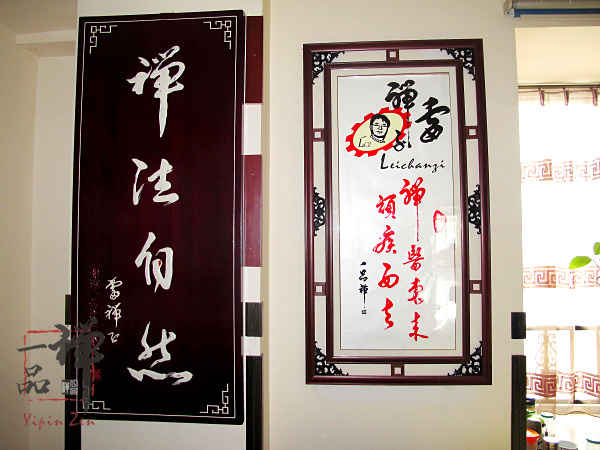 禅
法
自
然
雷禅
一品禅
Yipin Zen
雷禅子
Lcz
Leichanzi
禅醫东来
顽疾西去
一品禅